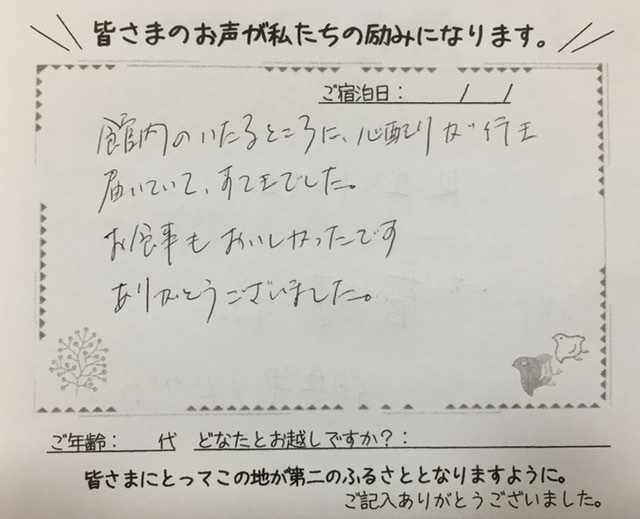 皆さまのお声が私たちの励みになります。
ご宿泊日： / /
館内のいたるところに、心配りが行き
届いていて、すてきでした。
お食事もおいしかったです
ありがとうございました。
ご年齢： 代 どなたとお越しですか？：
皆さまにとってこの地が第二のふるさととなりますように。
ご記入ありがとうございました。